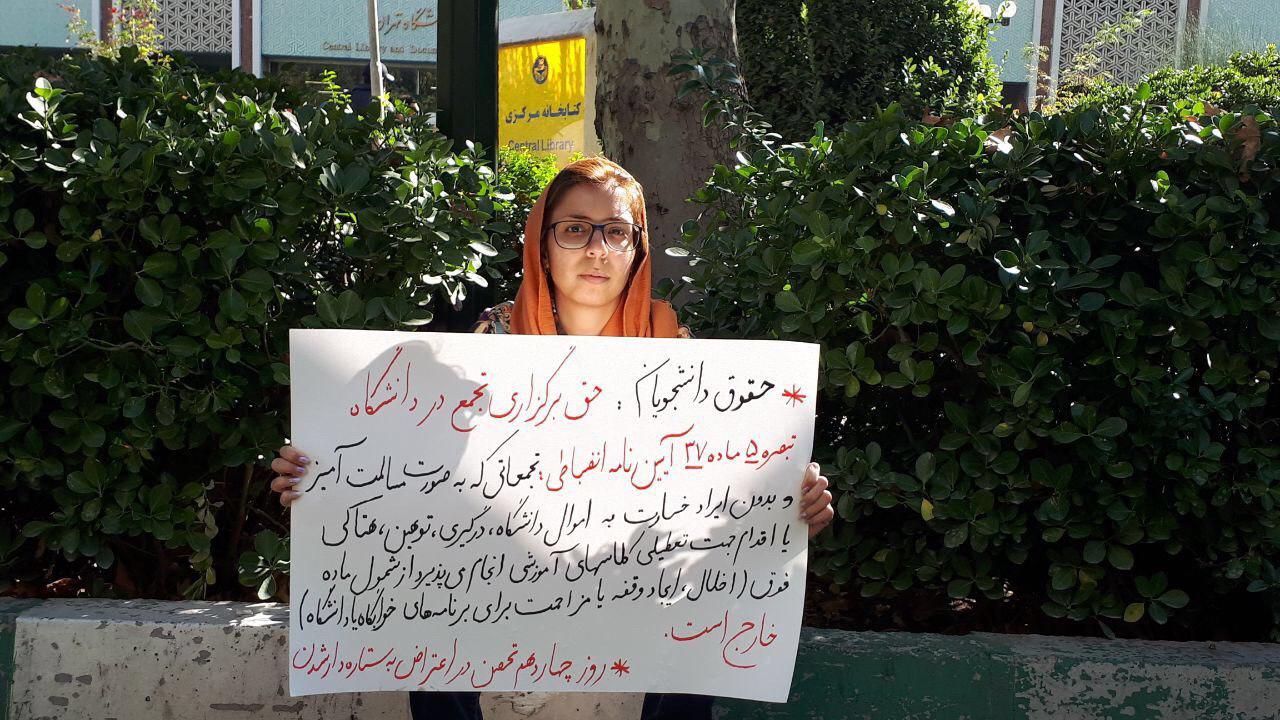 دانشگاه تهران
Central Library and Docum
کتابخانه مرکزی
Central Library
* حقوق دانشجویان : حق برگزاری تجمع در دانشگاه
تبصره ۵ ماده ۳۷ آیین نامه انضباطی: تجمعاتی که به صورت مسالمت آمیز
و بدون ایراد خسارت به اموال دانشگاه، درگیری، توهین، هتاکی
یا اقدام جهت تعطیلی کلاسهای آموزشی انجام می پذیرد از شمول ماده
فوق (اخلال، ایجاد وقفه یا مزاحمت برای برنامه‌های خوابگاه یا دانشگاه)
خارج است.
* روز چهاردهم تحصن در اعتراض به ستاره دار شدن